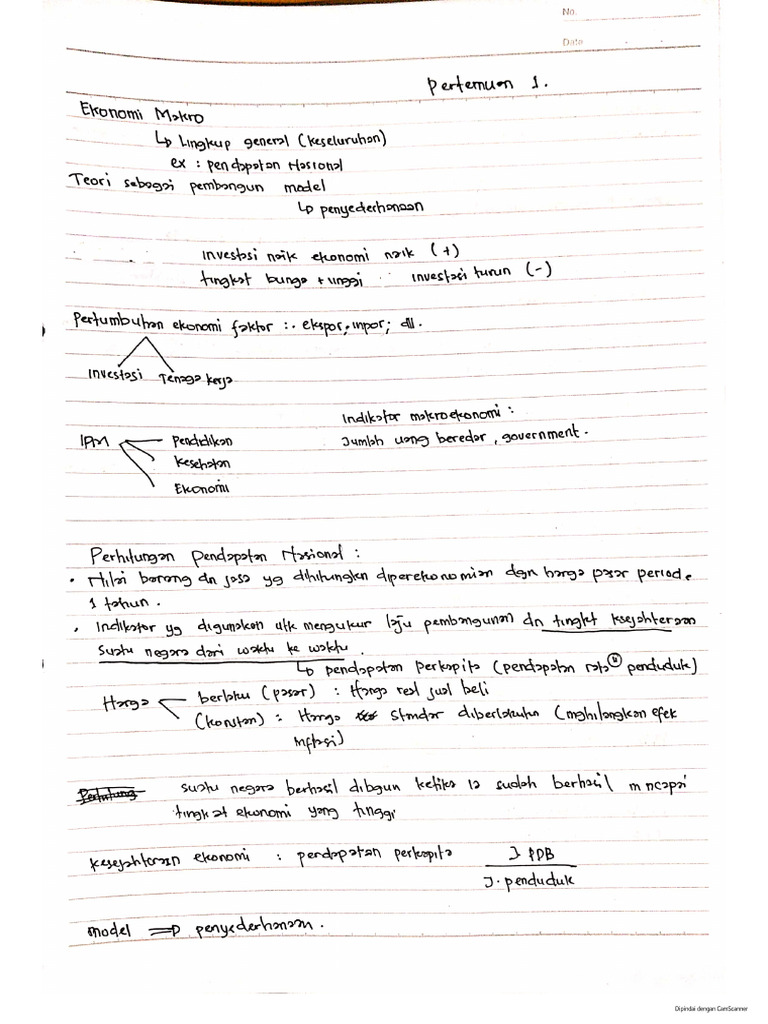 No.
Date
Pertemuan 1.
Ekonomi Makro
↳ Lingkup general (keseluruhan)
ex : pendapatan Nasional
Teori sebagai pembangun model
↳ penyederhanaan
Investasi naik ekonomi naik (+)
tingkat bunga tinggi investasi turun (-)
Pertumbuhan ekonomi faktor : ekspor, impor, dll.
Investasi Tenaga kerja
Indikator makroekonomi :
IPM Pendidikan Jumlah uang beredar, government.
Kesehatan
Ekonomi
Perhitungan pendapatan Nasional :
• Nilai barang dn jasa yg dihitungkn diperekonomian dgn harga pasar periode
1 tahun.
• Indikator yg digunakan utk mengukur laju pembangunan dn tingkat ksejahteraan
suatu negara dari waktu ke waktu.
↳ pendapatan perkapita (pendapatan rata² penduduk)
Harga berlaku (pasar) : Harga real jual beli
(konstan) : Harga standar diberlakukn (mghilangkan efek
inflasi)
suatu negara berhasil dibgun ketika ia sudah berhasil mncapai
tingkat ekonomi yang tinggi
kesejahteraan ekonomi : pendapatan perkapita J PDB
J. penduduk
model => penyederhanaan.
Dipindai dengan CamScanner